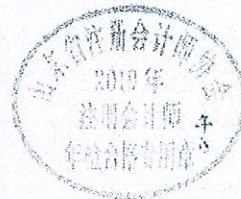 山东省注册会计师协会
2010年
注册会计师
年检合格专用章
年